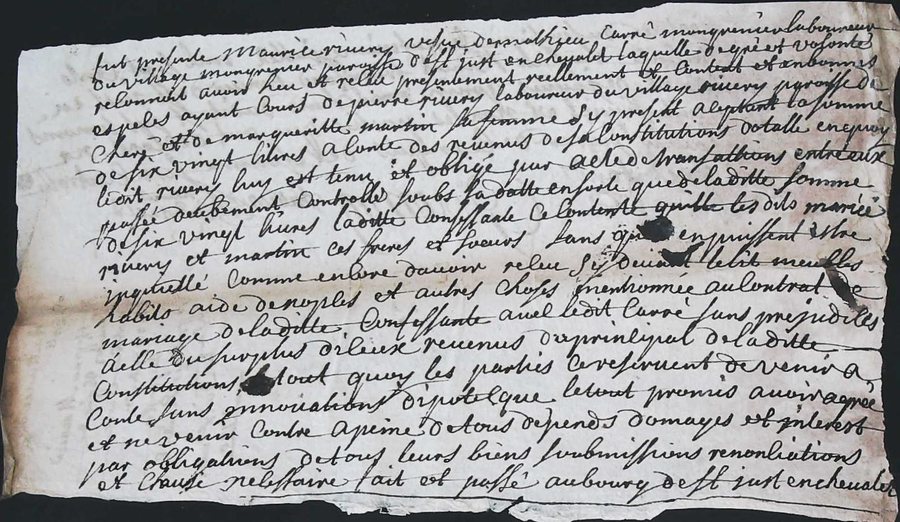 fut presente Maurice rivery vesve de mathieu Carré mongrenier laboureur
du village mongrenier paroisse de st just en chevalet laquelle de gré et volonte
reconnent avoir heu et relue presentement reellement et Content et en bonnes
espeles ayant Cours de pierre rivery laboureur du village rivery paroisse de
Cheré et de margueritte martin sa femme Sy present aleptant la somme
de six vingt livres a Conte des revenus de sa Constitutions dotalle en quoy
ledit rivery luy est tenu et obligé par acte de transathions entre eux
passée deuebement Controllé soubs sa datte en sorte que de laditte somme
de six vingt livres laditte Confessante Ce Contente quitte les dits marié
rivery et martin ces freres et soeurs sans que en puissent estre
inquietté Comme encore davoir releu Sy devant le lit meubles
habits aide de noples et autres Choses mentionnée au Contrat de
mariage de laditte Confessante avel ledit Carré sans prejudiles
a elle du surplus diceux revenus du prinsipal de laditte
Constitutions a tout quoy les parties Ce reservent de venir a
Conte sans innovations dipoteque le tout promis avoir agreé
et ne venir Contre a peine de tous depends domages et interest
par obligations de tous leurs biens soubmissions renonliations
et Clause nelessaire fait et passé au bourg de st just en chevalet